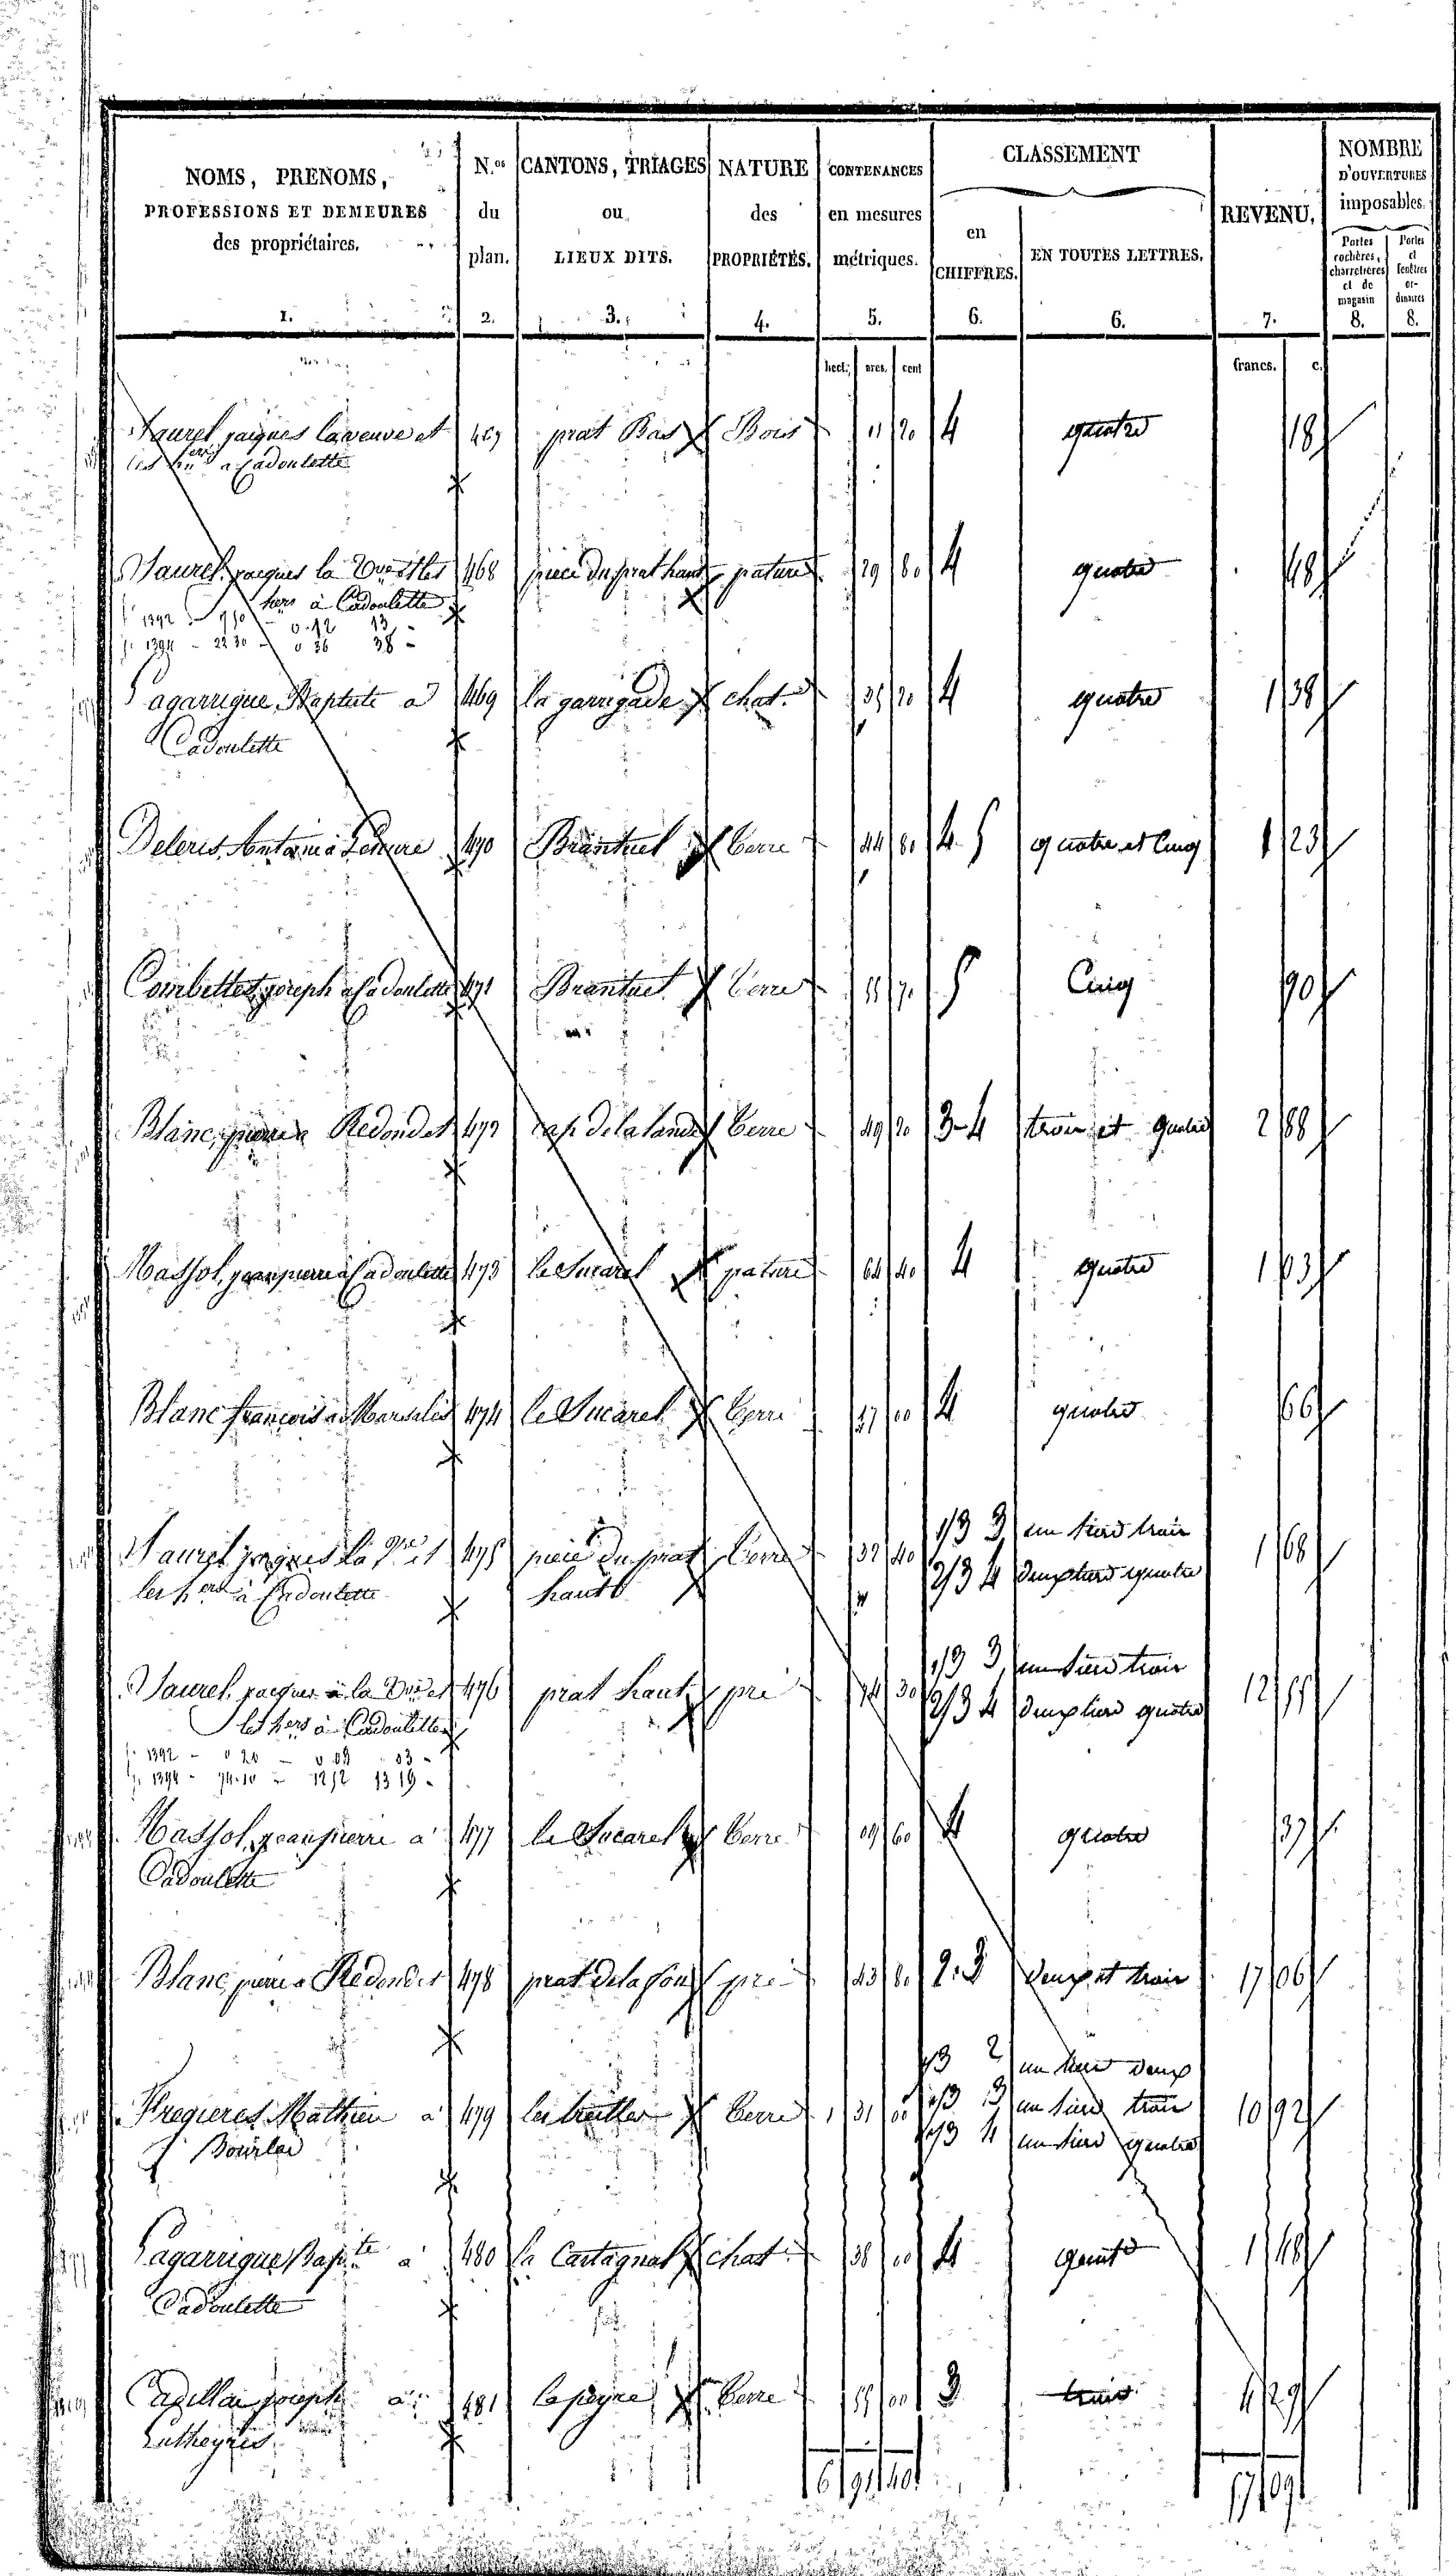 NOMS, PRENOMS, PROFESSIONS ET DEMEURES des propriétaires. 1.
N.os du plan. 2.
CANTONS, TRIAGES ou LIEUX DITS. 3.
NATURE des PROPRIÉTÉS. 4.
CONTENANCES en mesures métriques. 5.
CLASSEMENT
en CHIFFRES. 6.
EN TOUTES LETTRES. 6.
REVENU. 7.
NOMBRE D'OUVERTURES imposables.
Portes cochères, charretières et de magasin 8.
Portes et fenêtres ordinaires 8.
hect. ares. cent francs. c.
Saurel jacques la veuve et 467 prat Bas Bois 11 20 4 quatre 18
les hers a Cadoulette
Saurel jacques la Vve et les 468 piece du prat haut pature 29 80 4 quatre 48
hers à Cadoulette
f. 1392 - 7 50 - 0.12 13 -
f. 1394 - 22 30 - 0 36 38 -
Lagarrigue Baptiste a 469 la garrigade chat. 35 20 4 quatre 1 38
Cadoulette
Deleris, Antoine a 470 Brantuel terre 44 80 4.5 quatre et Cinq 1 23
Combettes joseph a Cadoulette 471 Brantuel terre 55 70 5 Cinq 90
Blanc, pierre a Redondet 472 cap de la lande terre 49 20 3-4 trois et quatre 2 88
Massol, jean pierre a Cadoulette 473 le Sucarel pature 64 40 4 quatre 1 03
Blanc françois a Marsalès 474 le Sucarel terre 17 00 4 quatre 66
Saurel jacques la Vve et 475 piece du prat terre 32 40 1/3 3 un tiers trois 1 68
les hers à Cadoulette haut 2/3 4 deux tiers quatre
Saurel jacques à la Vve et 476 prat haut pré 74 30 1/3 3 un tiers trois 12 55
les hers à Cadoulette 2/3 4 deux tiers quatre
f. 1392 - 0 20 - 0 03 - 03 -
f. 1394 - 74.10 - 12 52 13 19 -
Massol, jean pierre a 477 le Sucarel terre 09 60 4 quatre 37
Cadoulette
Blanc, pierre a Redondet 478 prat de la fon pré 43 80 2.3 deux et trois 17 06
1/3 2 un tiers deux
Fregieres Mathieu a 479 les terre 1 31 00 1/3 3 un tiers trois 10 92
1/3 4 un tiers quatre
Lagarrigue Bapte a 480 la Castagnal chat. 38 00 4 quatre 1 48
Cadoulette
Cadillac joseph a 481 la peyre terre 55 00 3 trois 4 29
6 91 40 57 09